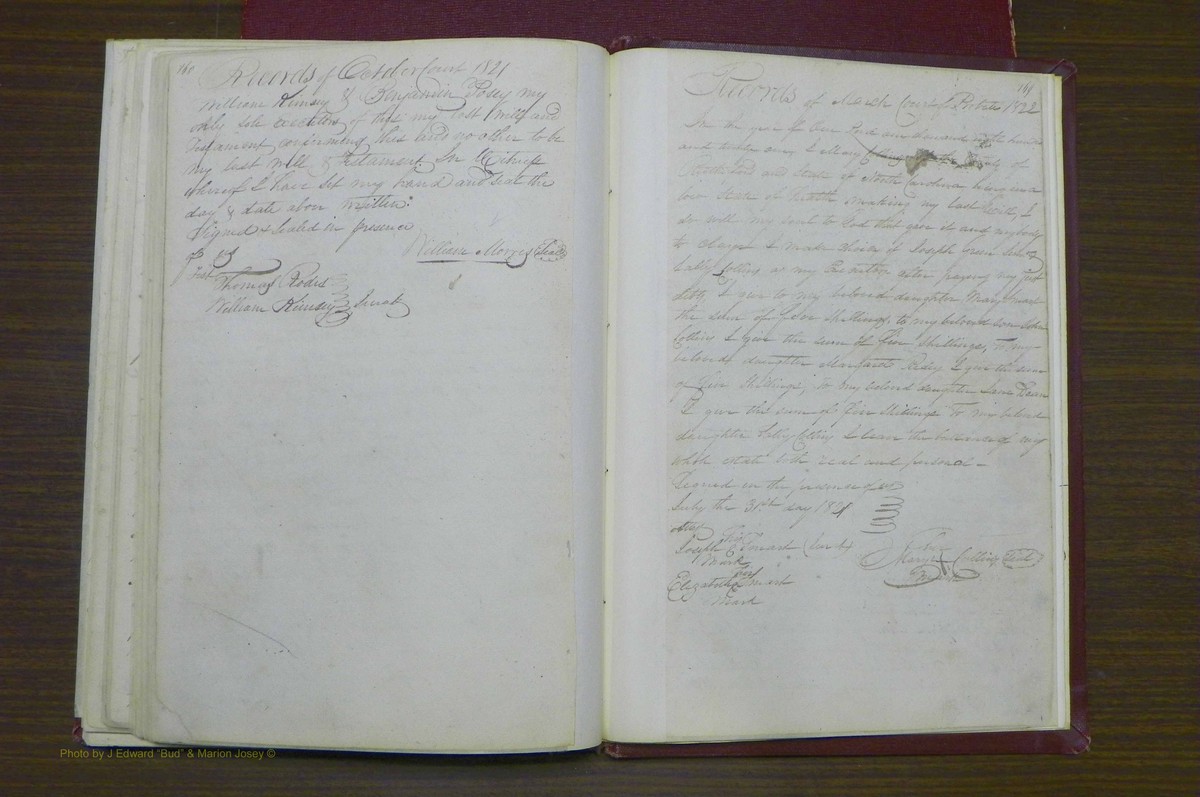 160
Records of October Court 1821
William Kimsey & Benjamin Posey my
only sole executors of this my last Will and
Testament confirming this and no other to be
my last Will & Testament In Witness
whereof I have set my hand and seal the
day & date above written.
Signed & Sealed in presence
of us
William Morris Seal
Test
Thomas Rodes
William Kimsey Jurat
161
Records of March Court 1822
In the year of Our Lord one thousand eight hund
and twenty one, I Mary Collins of the County of
Rutherford and State of North Carolina being in a
low State of health making my last Will, I
do will my soul to God that gave it and my body
to Clarge I make choice of Joseph
Sally Collins as my Executor after paying my just
debts, I give to my beloved daughter Mary
the sum of five Shillings, to my beloved son
Collins I give the sum of five Shillings, To my
beloved daughter Margaret I give the sum
of five Shillings, To my beloved daughter Jane
I give the sum of five Shillings To my beloved
daughter Sally Collins I leave the balance of my
whole estate both real and personal -
Signed in the presence of us
July the 31st day 1821
Attest
Joseph his Smart
mark
Mary her + Collins Seal
mark
Elizabeth her Smart
mark
Photo by J Edward "Bud" & Marion Josey ©